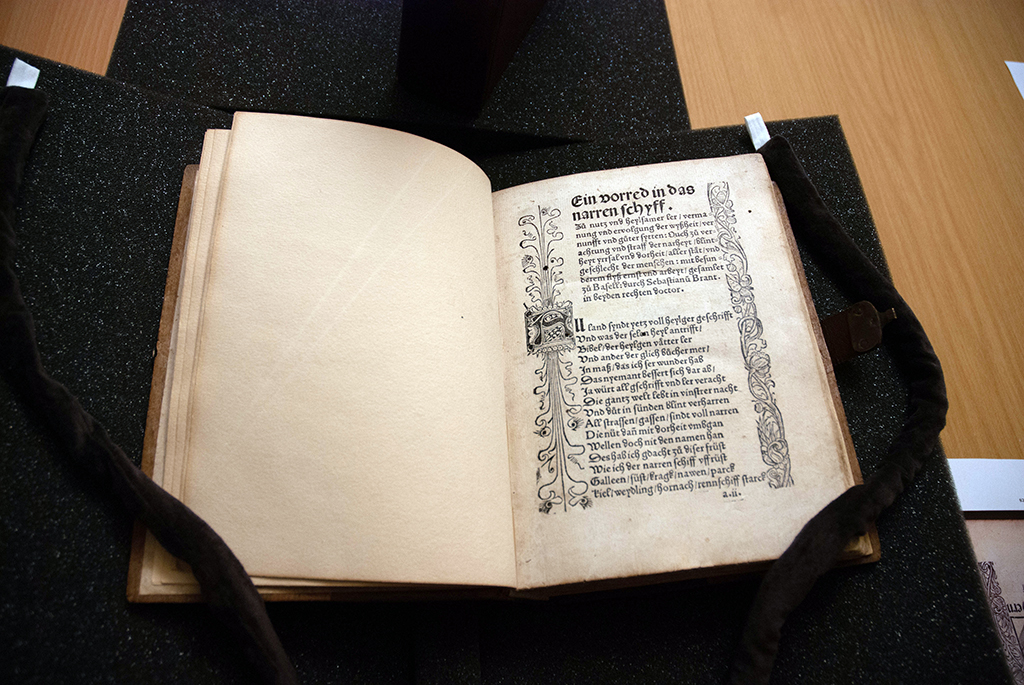 Ein vorred in das
narren schyff.
Zů nutz vnd heylsamer ler / verma
nung vnd ervolgung der wyßheit / ver
nunfft vnd gůter sytten: Ouch zů ver-
achtung vnd straff der narheyt / blint-
heyt yrrsal vnd dorheit / aller stät / vnd
geschlecht der menschen: mit besun
derem flyß ernst vnd arbeyt / gesamlet
zů Basell: durch Sebastianū Brant.
in beyden rechten doctor.
All land syndt yetz voll heylger geschrifft
Vnd was der selen heyl antrifft /
Bibel / der heylgen vätter ler
Vnd ander der glich bůcher mer /
In maß / das ich ser wunder hab
Das nyemant bessert sich dar ab /
Ja würt all gschrifft vnd ler veracht
Die gantz welt lebt in vinstrer nacht
Vnd důt in sünden blint verharren
All strassen / gassen / sindt voll narren
Die nüt dañ mit dorheit vmbgan
Wellen doch nit den namen han
Des hab ich gdacht zů diser früst
Wie ich der narren schiff vff rüst
Galleen / füst / kragk / nawen / parck
Kiel / weydling / hornach / rennschiff starck
a.ii.